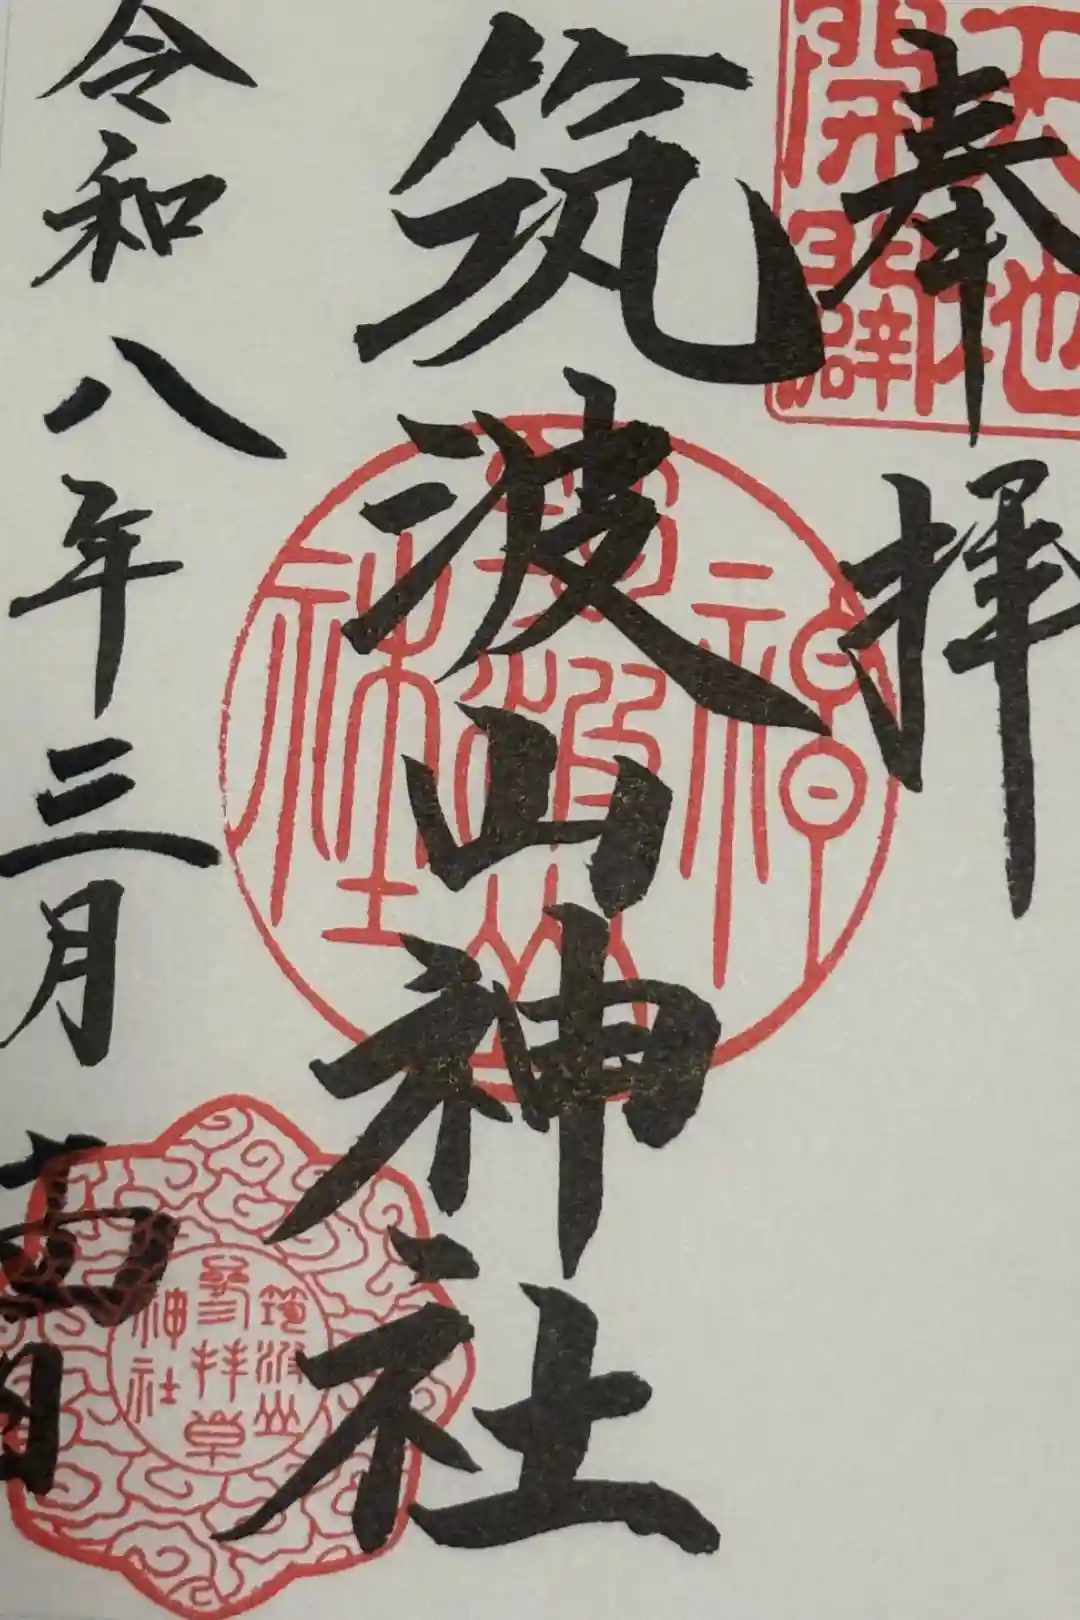 奉拝
天地
開闢
筑波山神社
筑波山
神社
令和八年三月
筑波山
参拝章
神社